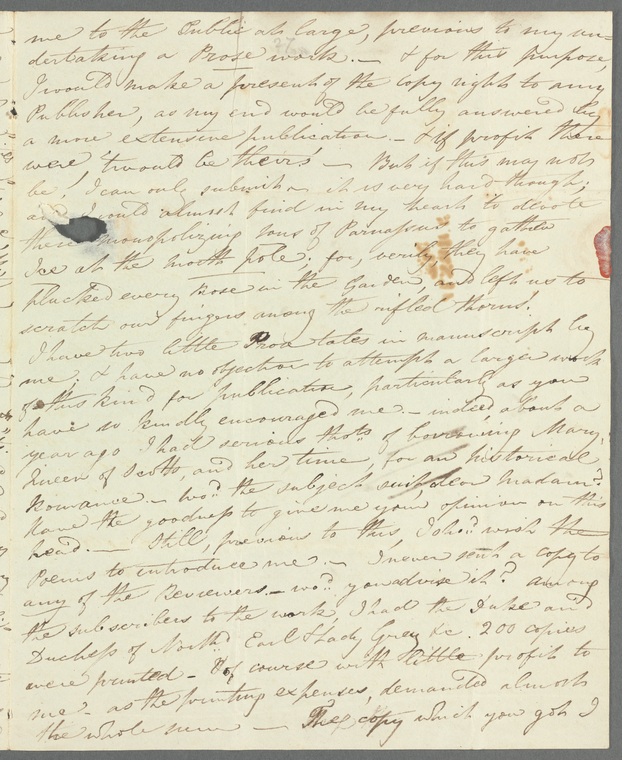 me to the Public at large, previous to my un-
dertaking a Prose work. — & for this purpose,
I would make a present of the copy right to any
Publisher, as my end would be fully answered by
a more extensive publication. — & if profit there
were, 'twould be theirs! — But if this may not
be, I can only submit — it is very hard though;
and I would almost find in my heart to devote
these monopolizing sons of Parnassus to gather
Ice at the north pole; for, verily they have
plucked every Rose in the Garden, and left us to
scratch our fingers among the rifled thorns!
I have two little Prose tales in manuscript by
me, & have no objection to attempt a larger work
of this kind for publication, particularly as you
have so kindly encouraged me. — indeed, about a
year ago I had serious thots. of borrowing Mary,
Queen of Scotts, and her time, for an historical
Romance — wod. the subject suit dear madam?
Have the goodness to give me your opinion on this
head. — Still, previous to this I shod. wish the
Poems to introduce me — I never sent a copy to
any of the Reviewers — wod. you advise it? among
the subscribers to the work, I had the Duke and
Duchess of Northd. Earl & Lady Grey &c. 200 copies
were printed — Of course with little profit to
me — as the printing expenses, demanded almost
the whole sum — The copy which you got I